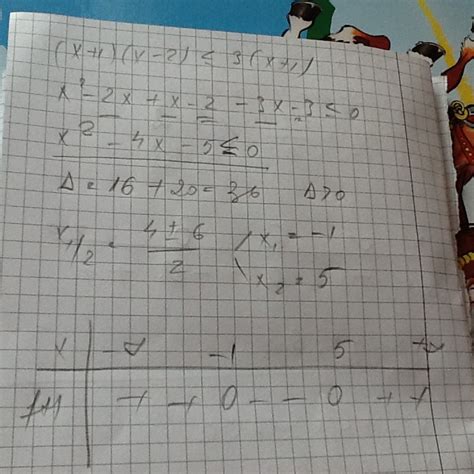 (x+1)(x-2) ≤ 3(x+1)
x² - 2x + x - 2 - 3x - 3 ≤ 0
x² - 4x - 5 ≤ 0
Δ = 16 + 20 = 36 Δ>0
x1/2 = (4 ± 6)/2 x₁ = -1
x₂ = 5
x | -∞ -1 5 +∞
f(x) | + + 0 - - 0 + +